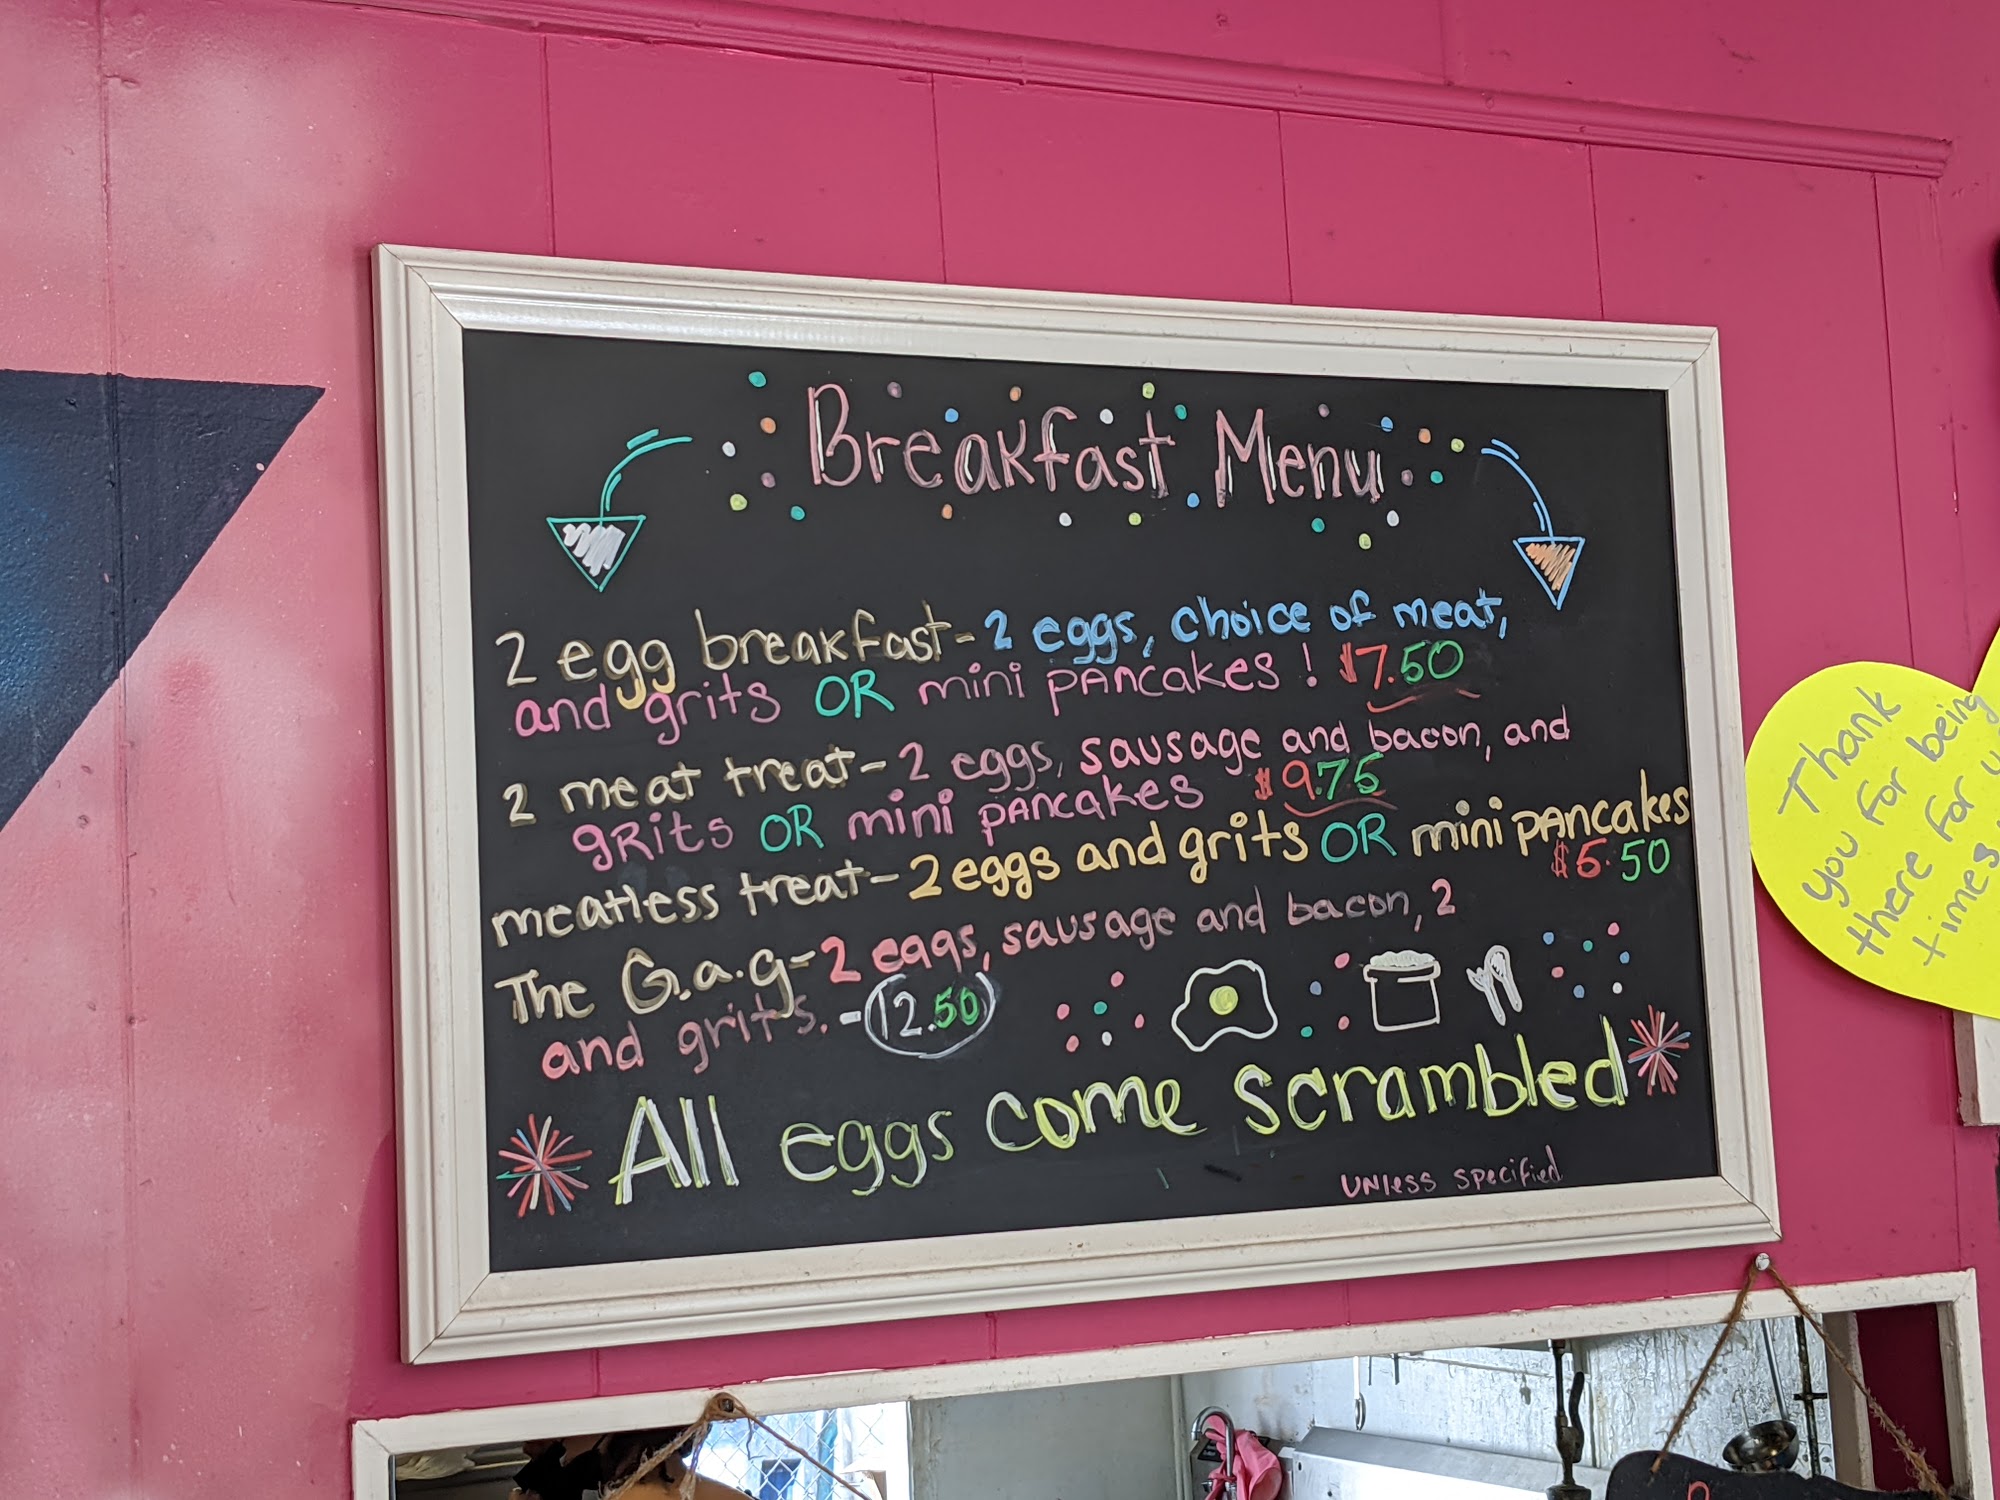 Breakfast Menu
2 egg breakfast - 2 eggs, choice of meat,
and grits OR mini pancakes! $7.50
2 meat treat - 2 eggs, sausage and bacon, and
grits OR mini pancakes $9.75
meatless treat - 2 eggs and grits OR mini pancakes
$5.50
The G.a.g - 2 eggs, sausage and bacon, 2
and grits. - 12.50
All eggs come scrambled
UNless specified
Thank
you for being
there for
times